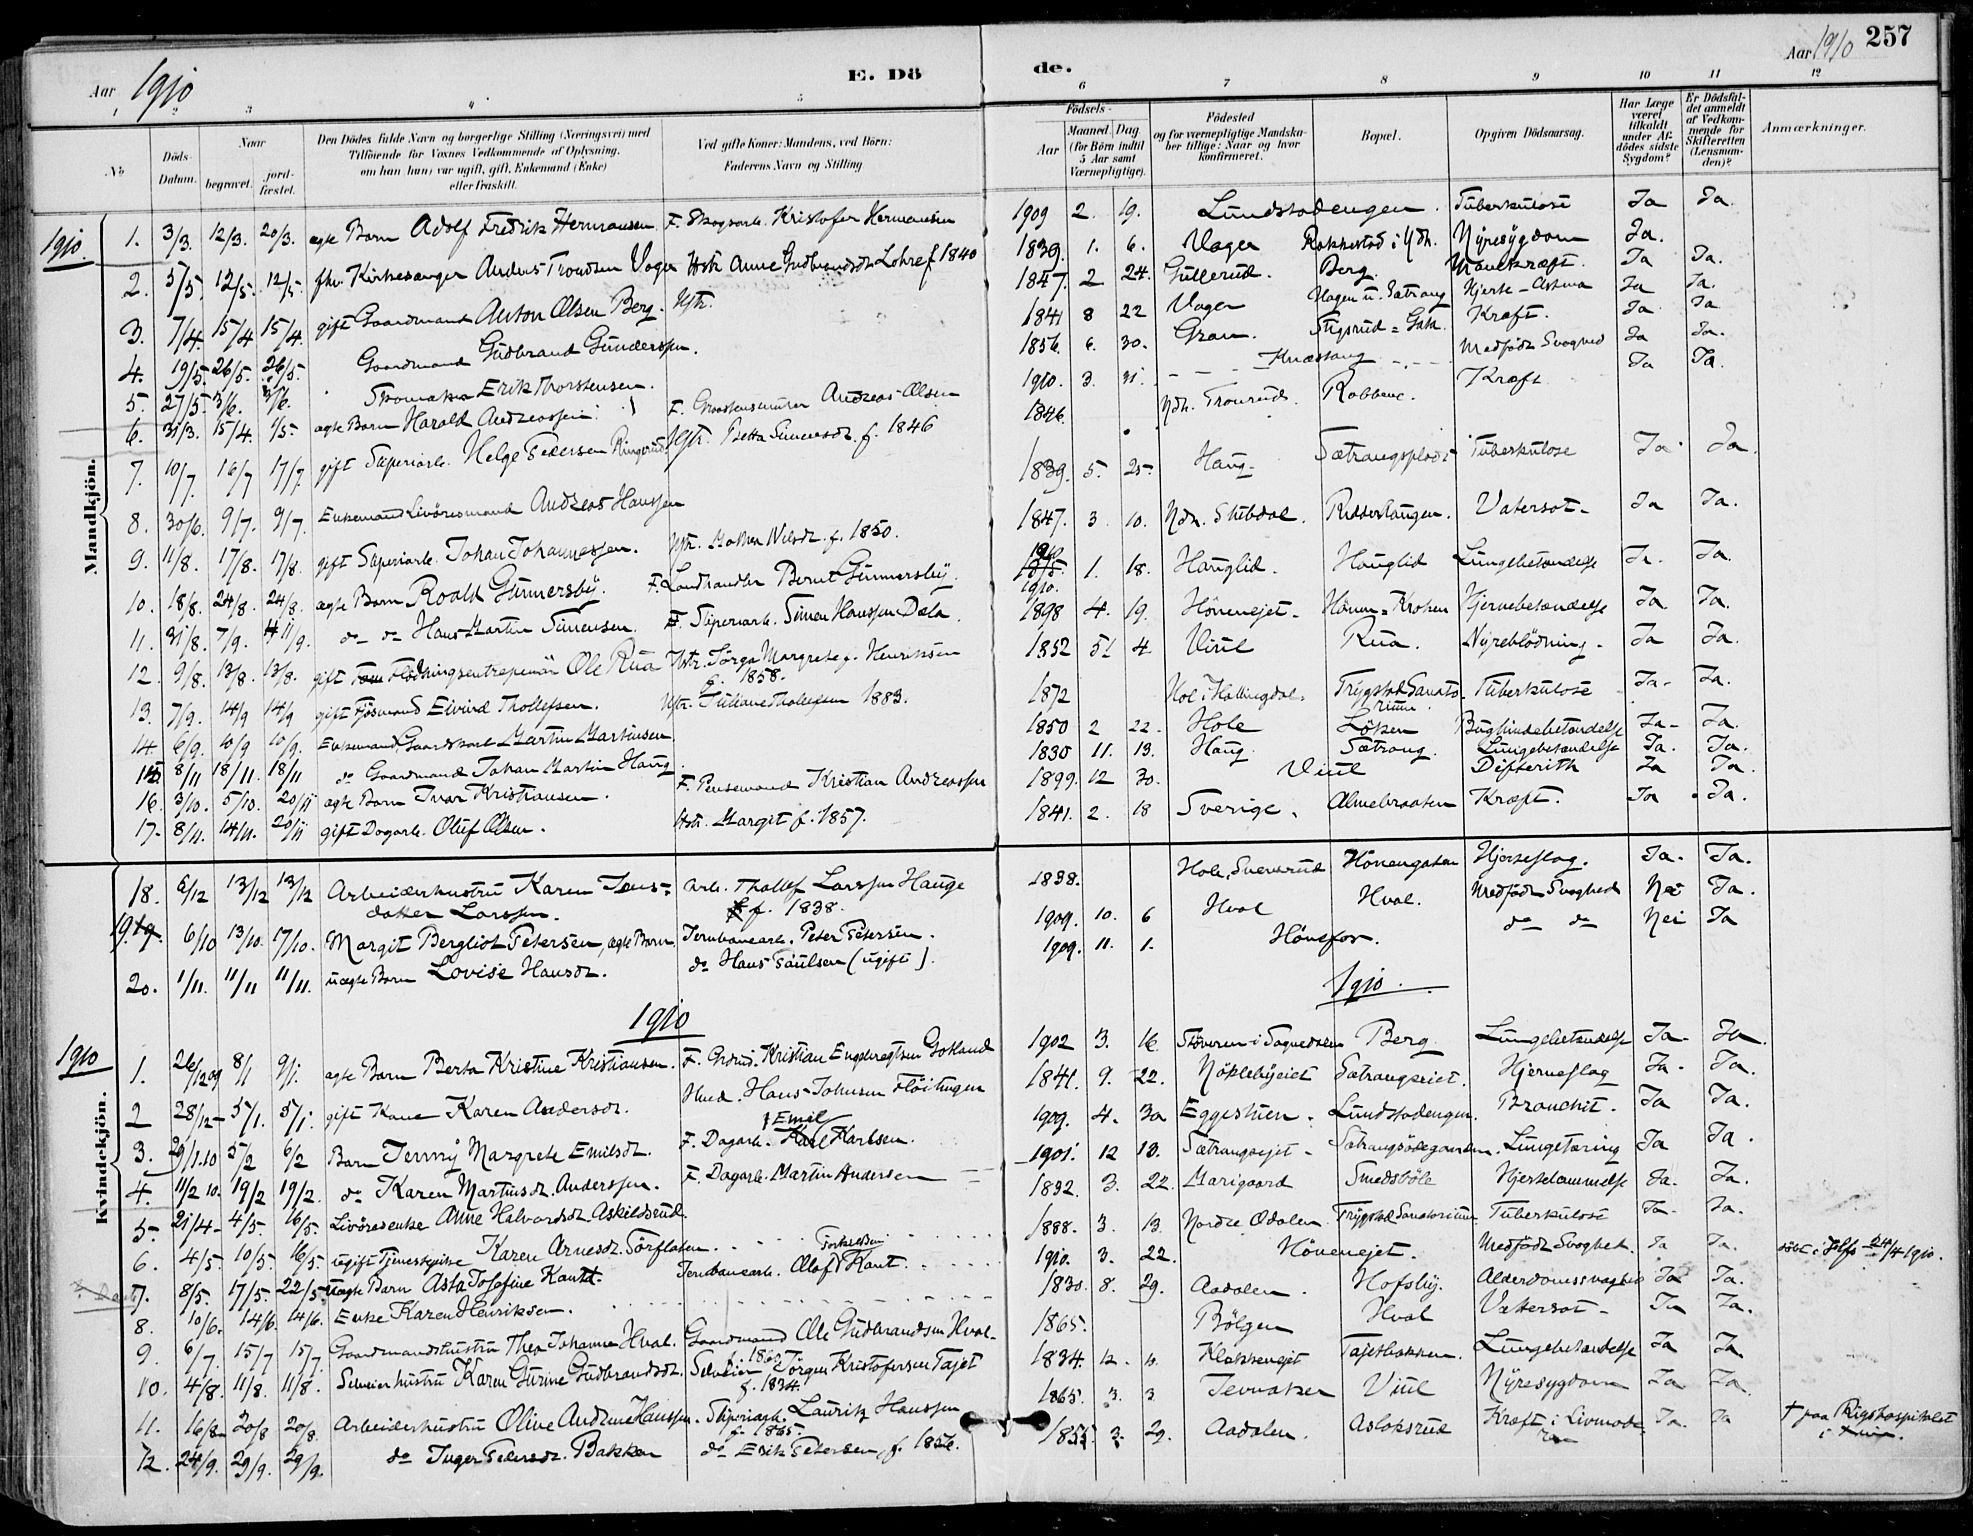 257
Aar 1910 E. Dö de. Aar 1910
1 2 3 4 5 6 7 8 9 10 11 12
No Döds-Datum. Naar begravet. jord-fæstet. Den Dödes fulde Navn og borgerlige Stilling (Næringsvei) med Tilföiende for Voxnes Vedkommende af Oplysning, om han (hun) var ugift, gift, Enkemand (Enke) eller fraskilt. Ved gifte Koner: Mandens, ved Börn: Faderens Navn og Stilling Födsels- Aar Maaned. Dag (for Börn indtil 5 Aar samt Værnepligtige). Födested og for værnepligtige Mandskaber tillige: Naar og hvor konfirmeret. Bopæl. Opgiven Dödsaarsag. Har Læge været tilkaldt under Afdödes sidste Sygdom? Er Dödsfaldet anmeldt af Vedkommende for Skifteretten (Lensmanden)? Anmærkninger.
Mandkjön.
1910.
1. 3/3. 12/3. 20/3. ægte Barn Adolf Fredrik Hermansen. F. Skogsarb. Kristofer Hermansen 1909 2. 19. Lundstadengen. Tuberkulose Ja Ja.
2. 5/5. 12/5. 12/5. fhv. Kirkesanger Anders Trondsen Vager Hstr. Anne Gudbrandsdr. Lohre f. 1840 1839. 1. 6. Vager Rakkestad i Ndh. Nyresygdom Ja.
3. 7/4. 15/4 15/4. gift Gaardmand Anton Olsen Berg. Hstr. 1847. 2 24. Gullerud. Berg. Mavekræft. Ja Ja.
4. 19/5. 26/5. 26/5. Gaardmand Gudbrand Gundersen. 1841 8 22 Vager Hagen u. Sætrang Hjerte-Astma Ja Ja.
5. 27/5. 3/6. 3/6. Skomaker Erik Thorstensen. 1856. 6. 30. Gran. Stigsrud Kræft. Ja Ja
6. 31/3. 15/4. 1/5. ægte Barn Harald Andreassen. F. Andreas Olsen 1910. 3. 31. Knæstang Medfödt Svaghed Ja Ja.
7. 10/7. 16/7 17/7. gift Sliperiarb. Helge Pedersen Ringerud. Hstr. Berta Simensdr. f. 1846 1846. Ndh. Tronrud. Robbene. Kræft Ja Ja.
8. 30/6. 9/7. 9/7. Enkemand Livöresmand Andreas Hanssen 1839. 5. 25. Haug. Sætrangsplads Tuberkulose Ja Ja.
9. 11/8. 17/8. 17/8. gift Sliperiarb. Johan Johannessen. Hstr. Mathea Nilsdr. f. 1850. 1847. 3. 10. Ndh. Stubdal. Ridderklangen. Vatersot. Ja Ja.
10. 18/8. 24/8. 24/8. ægte Barn Roald Gunnersby. F. Landhandler Bernt Gunnersby. 1910 1. 18. Hauglid. Hauglid Lungebetændelse Ja. Ja.
11. 31/8. 7/9. 11/9. do do Hans Martin Simensen. F. Sliperiarb. Simen Hanssen Dæla. 1910. 1898 4. 19. Hönenejet. Hönen-Kroken Hjernebetændelse Ja. Ja.
12. 9/8. 13/8. 13/8. gift Flödningsentreprenör Ole Rua Hstr. Jörga Margrethe f. Henriksen f. 1858. 1852 5. 4. Viul Rua. Nyreblödning. Ja Ja.
13. 7/9. 14/9 14/9 gift Fjösmand Eivind Thollefsen. Hstr. Juliane Thollefsen 1883. 1872 Hol i Hallingdal. Trygstad Sanatorium Tuberkulose Ja. Ja.
14. 6/9. 10/9 10/9. Enkemand Gaardskarl Martin Martinsen. 1850 2 22. Hole Löken Bughindebetændelse Ja. Ja.
15. 8/11 18/11. 18/11 do Gaardmand Johan Martin Haug. 1830 11. 13. Haug. Sætrang. Lungebetændelse Ja. Ja.
16. 3/10. 5/10. 20/11 ægte Barn Ivar Kristiansen. F. Pensemand Kristian Andreassen 1899. 12 30. Viul Difterith Ja Ja.
17. 8/11. 14/11. 20/11 gift Dagarb. Oluf Olsen. Hstr. Margit f. 1857. 1841. 2. 18 Sverige. Almebraaten Kræft. Ja Ja.
18. 6/12 13/12 13/12 Arbeiderhustru Karen Jensdatter Larssen. Arb. Thollef Larssen Hauge f. 1838. 1838. Hole, Svensrud Hönengaten Hjerteslag. Ja. Ja.
19. 6/10 13/10. 17/10. Margit Bergliot Petersen, ægte Barn Jernbanearb. Peter Petersen. 1909. 10. 6 Hval Hval. Medfödt Svaghed Nei Ja.
20. 1/11. 11/11 11/11. uægte Barn Lovise Hansdr. do Hans Paulsen (ugift). 1909. 11. 1. Hönefos. do do Nei Ja
1910 1910.
Kvindekjön.
1910
1. 26/12 09 8/1 9/1. ægte Barn Berta Kristine Kristiansen. F. Kristian Engebregtsen Gotland 1902 3. 16. Stöveren i Soknedalen Berg. Lungebetændelse Ja. Ja.
2 28/12 5/1. 5/1. gift Kone Karen Andersdr. Hmd. Hans Johnsen Flöitingen 1841. 9. 22. Nöklebyeiet Sætrangseiet. Hjerneslag Ja. Ja.
3. 29/1.10 5/2 6/2 Barn Jenny Margrete Emilsdr. F. Dagarb. Emil Karlsen. 1909. 4. 30. Eggestuen. Lundstadengen. Bronchit. Ja Ja.
4. 11/2 10. 19/2 19/2. do Karen Martinsdr. Anderssen. F. Dagarb. Martin Andersen 1901. 12 13. Sætrangejet. Sætrangsödegaarden. Lungetæring Ja Ja.
5. 21/4 4/5. 16/5. Livöresenke Anne Halvorsdr. Askildsrud. 1832. 3. 22. Marigaard Smedsböle Hjertelammelse Ja. Ja.
6. 4/5. 10/5. 16/5. ugift Tjenestpike Karen Arnesdr. Sörflaten. 1888. 3. 13. Nordre Odalen Trygstad Sanatorium Tuberkulose Ja. Ja.
7. 8/5. 17/5. 22/5. uægte Barn Asta Josefine Kant. Jernbanearb. Olaf Kant. 1910. 3. 22. Hönenejet. Medfödt Svaghet. Ja Ja. döbt i Hfs 24/4 1910.
8. 10/6. 14/6. 14/6. Enke Karen Henriksen. 1830. 8. 29. Aadalen. Hofsby. Alderdomssvaghed Ja. Ja.
9. 6/7. 15/7 15/7. Gaardmandshustru Thea Johanne Hval. Gaardmand Ole Gudbrandsen Hval. 1865. Bölgen Hval Vattersot. Ja Ja.
10. 4/8. 11/8. 11/8. Selveierhustru Karen Gurine Gudbrandsdr. Selveier Jörgen Kristofersen Tajet f. 1834. 1834. 12. Klækkenejet Tajetbakken. Lungebetændelse Ja Ja
11. 16/8. 20/8 20/8. Arbeiderhustru Oline Andrine Hanssen. Sliperiarb. Lauritz Hanssen f. 1865. 1865. 3. 3 Jevnaker Viul Nyresygdom Ja Ja.
12. 24/9. 29/9. 29/9. do Inger Pedersdr. Bakken do Erik Petersen, f. 1856. 1855. 3. 29. Aadalen. Aslaksrud Kræft i Livmoderen Ja. Ja † paa Rigshospitalet